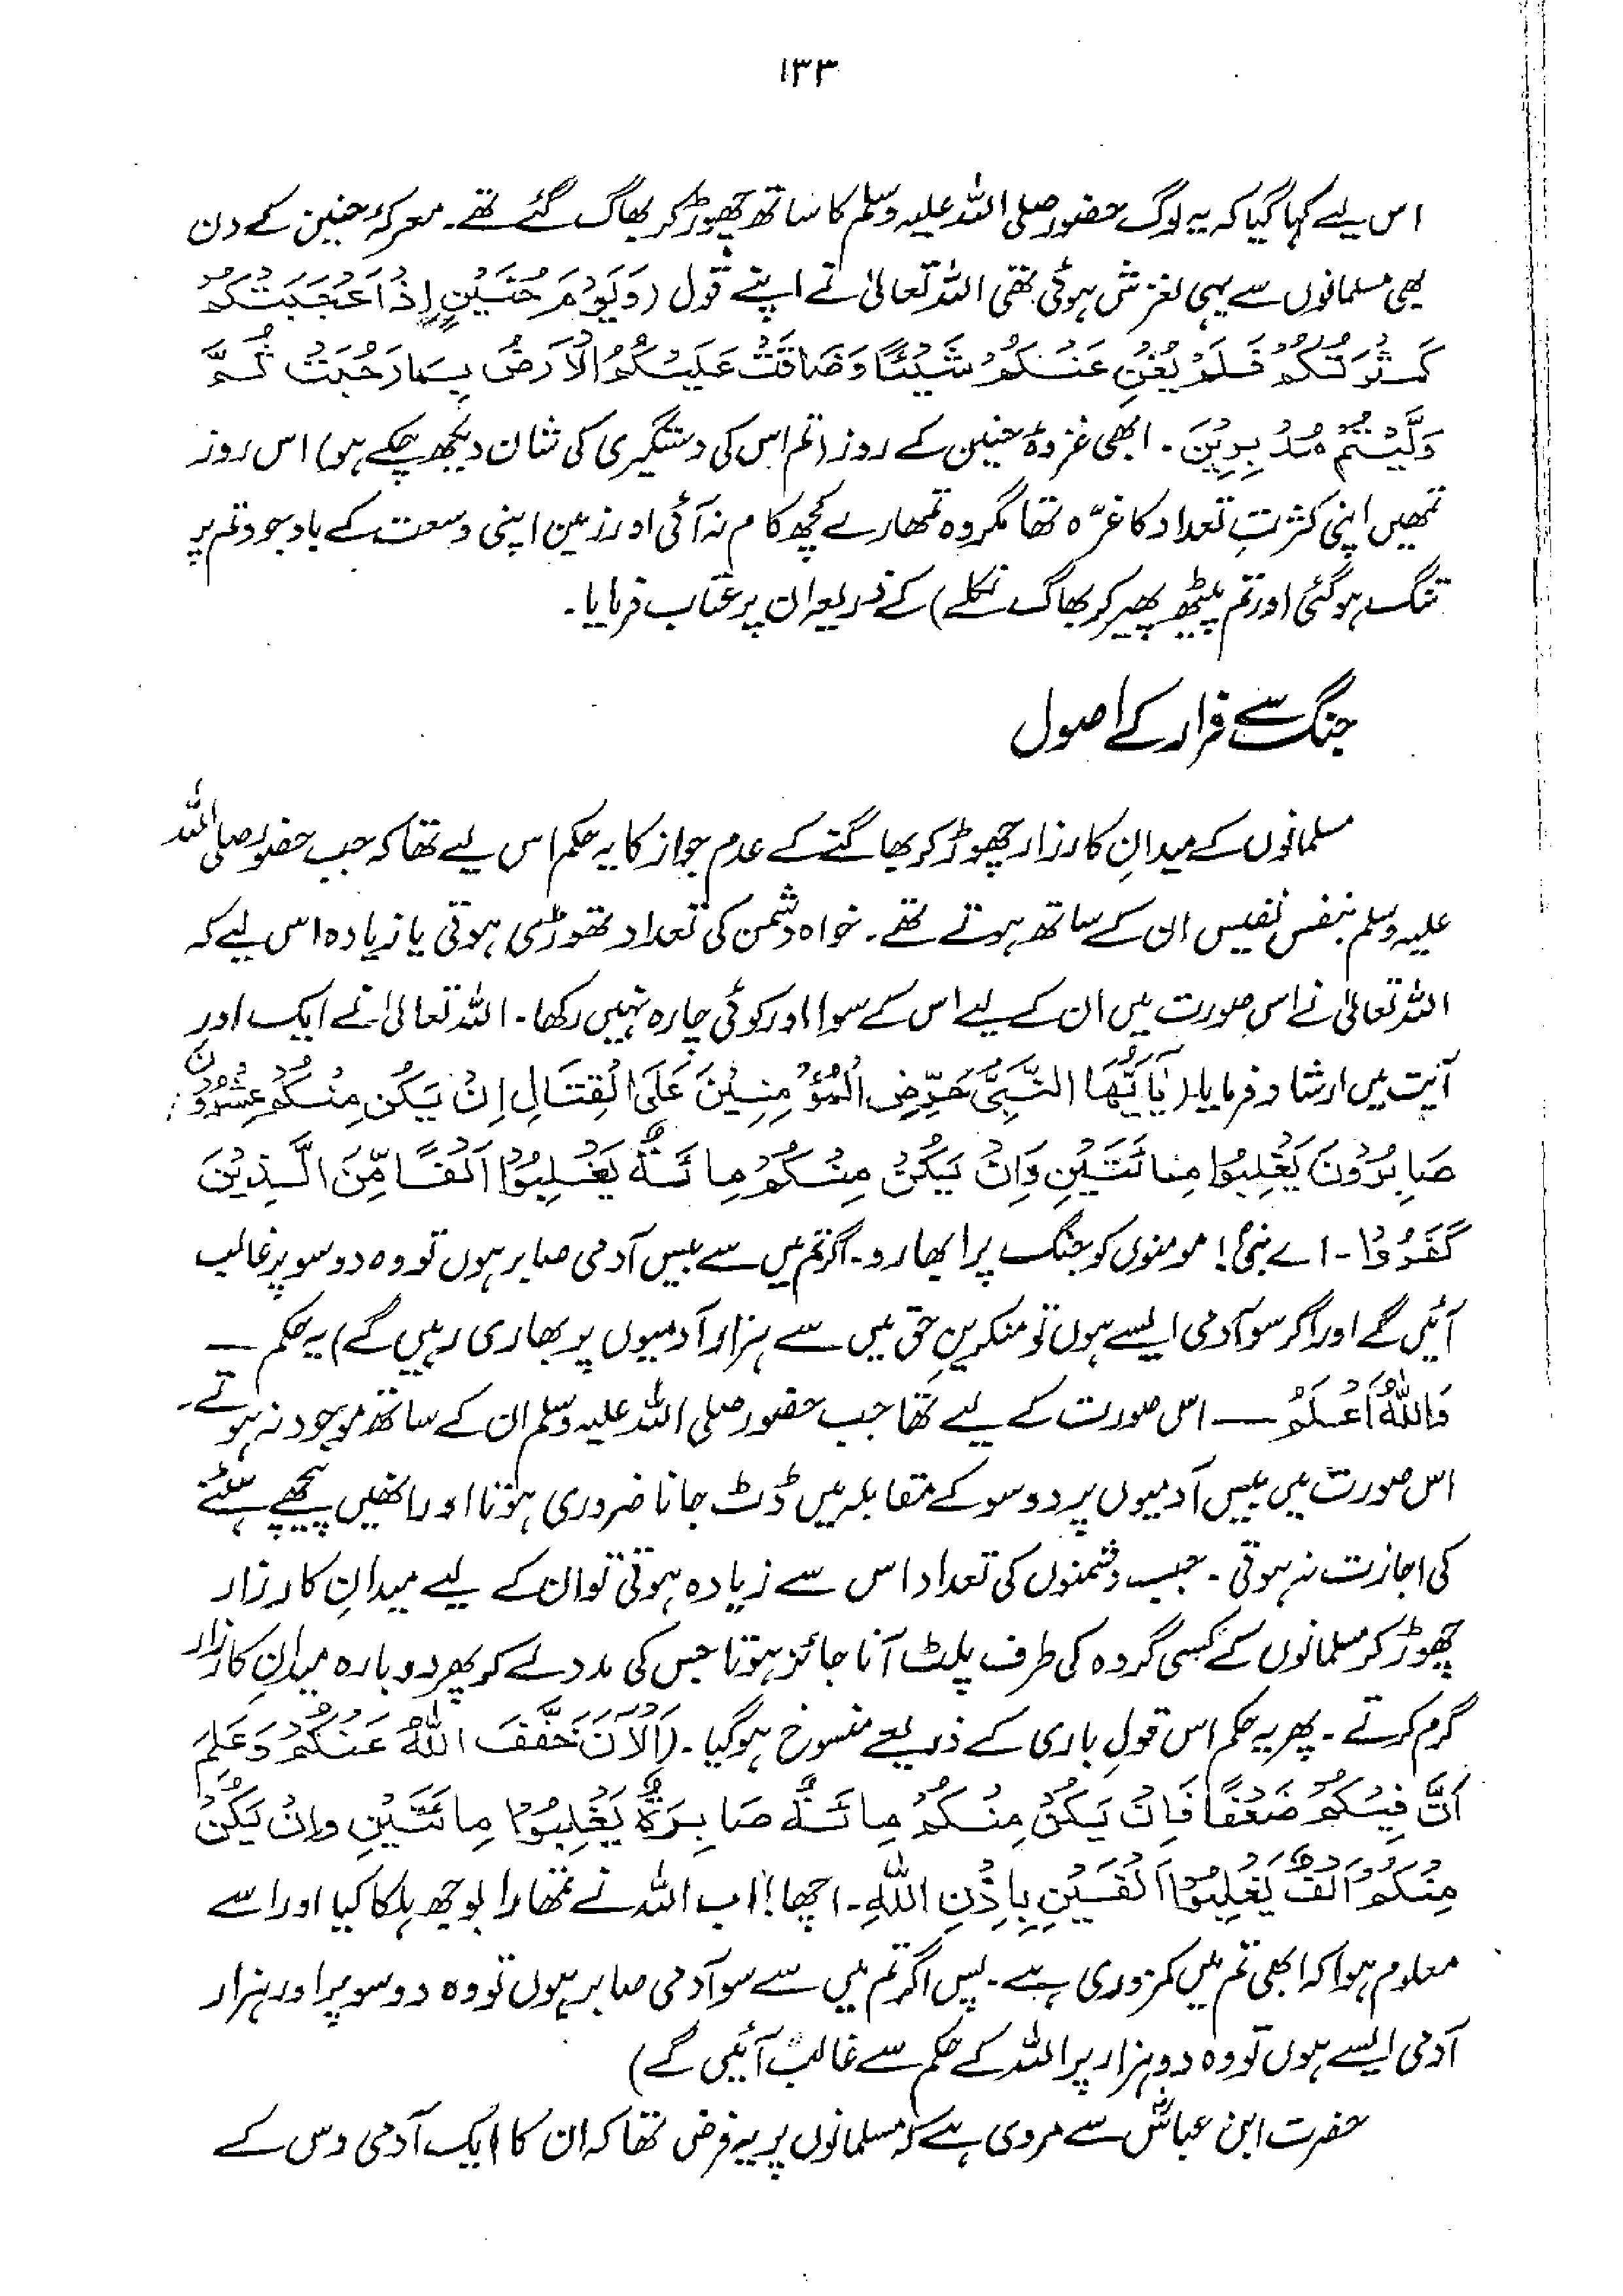 ۱۳۳
اس لیے کہا گیا کہ یہ لوگ حضور صلی اللہ علیہ وسلم کا ساتھ چھوڑ کر بھاگ گئے تھے۔ معرکۂ حنین کے دن
بھی مسلمانوں سے یہی لغزش ہوئی تھی اللہ تعالیٰ نے اپنے قول (وَيَوْمَ حُنَيْنٍ إِذْ اَعْجَبَتْكُمْ
كَثْرَتُكُمْ فَلَمْ يُغْنِ عَنْكُمْ شَيْئًا وَضَاقَتْ عَلَيْكُمُ الْاَرْضُ بِمَا رَحُبَتْ ثُمَّ
وَلَّيْتُمْ مُدْبِرِيْنَ۔ ابھی غزوۂ حنین کے روز (تم اس کی دستگیری کی شان دیکھ چکے ہو) اس روز
تمھیں اپنی کثرتِ تعداد کا غرّہ تھا مگر وہ تمھارے کچھ کام نہ آئی اور زمین اپنی وسعت کے باوجود تم پر
تنگ ہو گئی اور تم پیٹھ پھیر کر بھاگ نکلے) کے ذریعہ ان پر عتاب فرمایا۔
جنگ سے فرار کے اصول
مسلمانوں کے میدانِ کارزار چھوڑ کر بھاگنے کے عدم جواز کا یہ حکم اس لیے تھا کہ جب حضور صلی اللہ
علیہ وسلم بنفس نفیس ان کے ساتھ ہوتے تھے۔ خواہ دشمن کی تعداد تھوڑی ہوتی یا زیادہ اس لیے کہ
اللہ تعالیٰ نے اس صورت میں ان کے لیے اس کے سوا اور کوئی چارہ نہیں رکھا۔ اللہ تعالیٰ نے ایک اور
آیت میں ارشاد فرمایا (يٰاَيُّهَا النَّبِىُّ حَرِّضِ الْمُؤْمِنِيْنَ عَلَى الْقِتَالِ اِنْ يَكُنْ مِنْكُمْ عِشْرُوْنَ
صَابِرُوْنَ يَغْلِبُوْا مِائَتَيْنِ وَاِنْ يَكُنْ مِنْكُمْ مِائَةٌ يَغْلِبُوْا اَلْفًا مِّنَ الَّذِيْنَ
كَفَرُوْا۔ اے نبیؐ! مومنوں کو جنگ پر ابھارو۔ اگر تم میں سے بیس آدمی صابر ہوں تو وہ دو سو پر غالب
آئیں گے اور اگر سو آدمی ایسے ہوں تو منکرینِ حق میں سے ہزار آدمیوں پر بھاری رہیں گے) یہ حکم —
وَاللهُ اَعْلَمُ — اس صورت کے لیے تھا جب حضور صلی اللہ علیہ وسلم ان کے ساتھ موجود نہ ہوتے۔
اس صورت میں بیس آدمیوں پر دو سو کے مقابلہ میں ڈٹ جانا ضروری ہوتا اور انھیں پیچھے ہٹنے
کی اجازت نہ ہوتی۔ جب دشمنوں کی تعداد اس سے زیادہ ہوتی تو ان کے لیے میدانِ کارزار
چھوڑ کر مسلمانوں کے کسی گروہ کی طرف پلٹ آنا جائز ہوتا جس کی مدد لے کر پھر دوبارہ میدانِ کارزار
گرم کرتے۔ پھر یہ حکم اس قولِ باری کے ذریعے منسوخ ہو گیا۔ (اَلْاٰنَ خَفَّفَ اللهُ عَنْكُمْ وَعَلِمَ
اَنَّ فِيْكُمْ ضَعْفًا فَاِنْ يَكُنْ مِنْكُمْ مِائَةٌ صَابِرَةٌ يَغْلِبُوْا مِائَتَيْنِ وَاِنْ يَكُنْ
مِنْكُمْ اَلْفٌ يَغْلِبُوْا اَلْفَيْنِ بِاِذْنِ اللهِ۔ اچھا! اب اللہ نے تمھارا بوجھ ہلکا کیا اور اسے
معلوم ہوا کہ ابھی تم میں کمزوری ہے۔ پس اگر تم میں سے سو آدمی صابر ہوں تو وہ دو سو پر اور ہزار
آدمی ایسے ہوں تو وہ دو ہزار پر اللہ کے حکم سے غالب آئیں گے)
حضرت ابن عباسؓ سے مروی ہے کہ مسلمانوں پر یہ فرض تھا کہ ان کا ایک آدمی دس کے